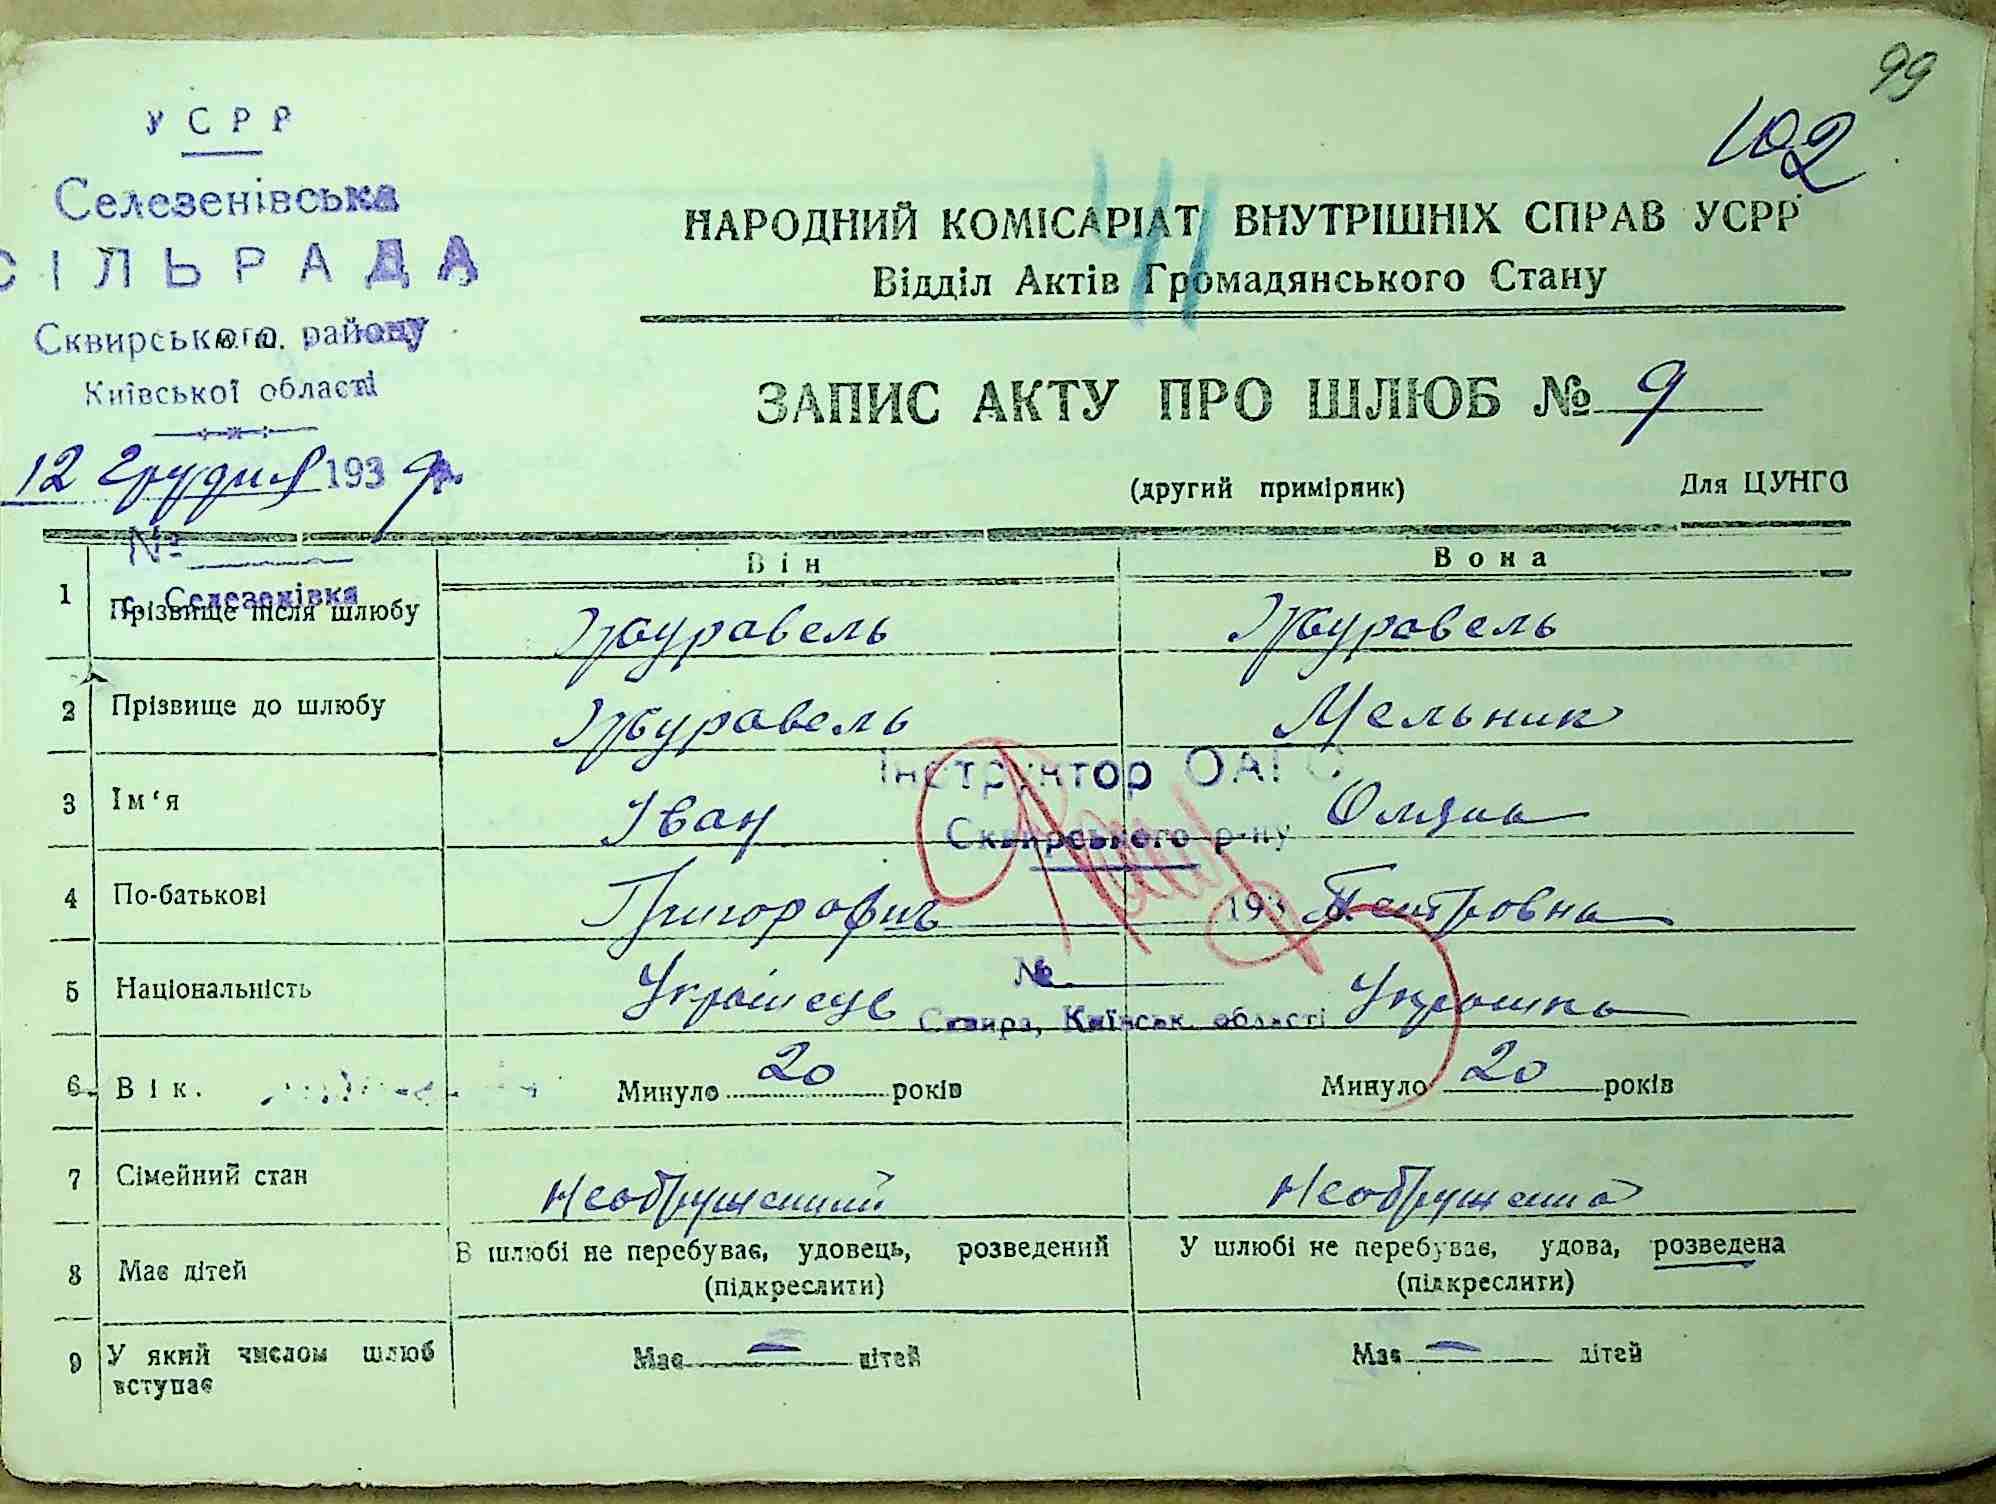 99
102
УСРР
Селезенівська
СІЛЬРАДА
Сквирського району
Київської області
12 грудня 193
№
с. Селезенівка
41
НАРОДНИЙ КОМІСАРІАТ ВНУТРІШНІХ СПРАВ УСРР
Відділ Актів Громадянського Стану
ЗАПИС АКТУ ПРО ШЛЮБ № 9
(другий примірник) Для ЦУНГО
Він Вона
1 Прізвище після шлюбу Журавель Журавель
2 Прізвище до шлюбу Журавель Мельник
Інструктор ОАГС
3 Ім‘я Іван Оляна
Сквирського р-ну
4 По-батькові Григорович Петровна
193
5 Національність Українець Українка
№
Сквира, Київськ. області
6 Вік. Минуло 20 років Минуло 20 років
7 Сімейний стан Необружений Необружена
В шлюбі не перебуває, удовець, розведений У шлюбі не перебуває, удова, розведена
8 Має дітей (підкреслити) (підкреслити)
9 У який числом шлюб вступає Має — дітей Має — дітей